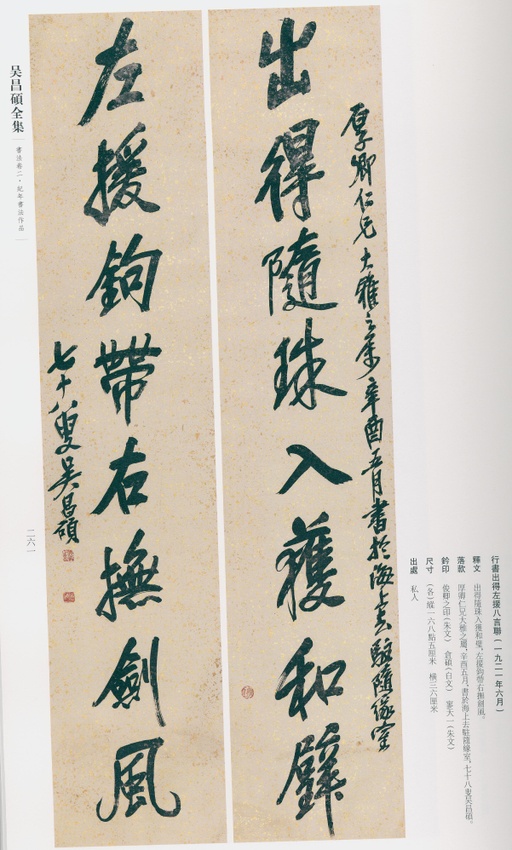 厚卿仁兄大雅之属辛酉五月書於海上去駐隨緣室
出得隨珠入獲和璧
左援鉤帶右撫劍風
七十八叟吴昌碩
行書出得左援八言聯（一九二一年六月）
釋文 出得隨珠入獲和璧，左援鉤帶右撫劍風。
落款 厚卿仁兄大雅之屬，辛酉五月，書於海上去駐隨緣室，七十八叟吴昌碩。
鈐印 俊卿之印（朱文） 倉碩（白文） 寥天一（朱文）
尺寸 （各）縱一六八點五厘米 橫三六厘米
出處 私人
吴昌碩全集
書法卷二・紀年書法作品
二六一